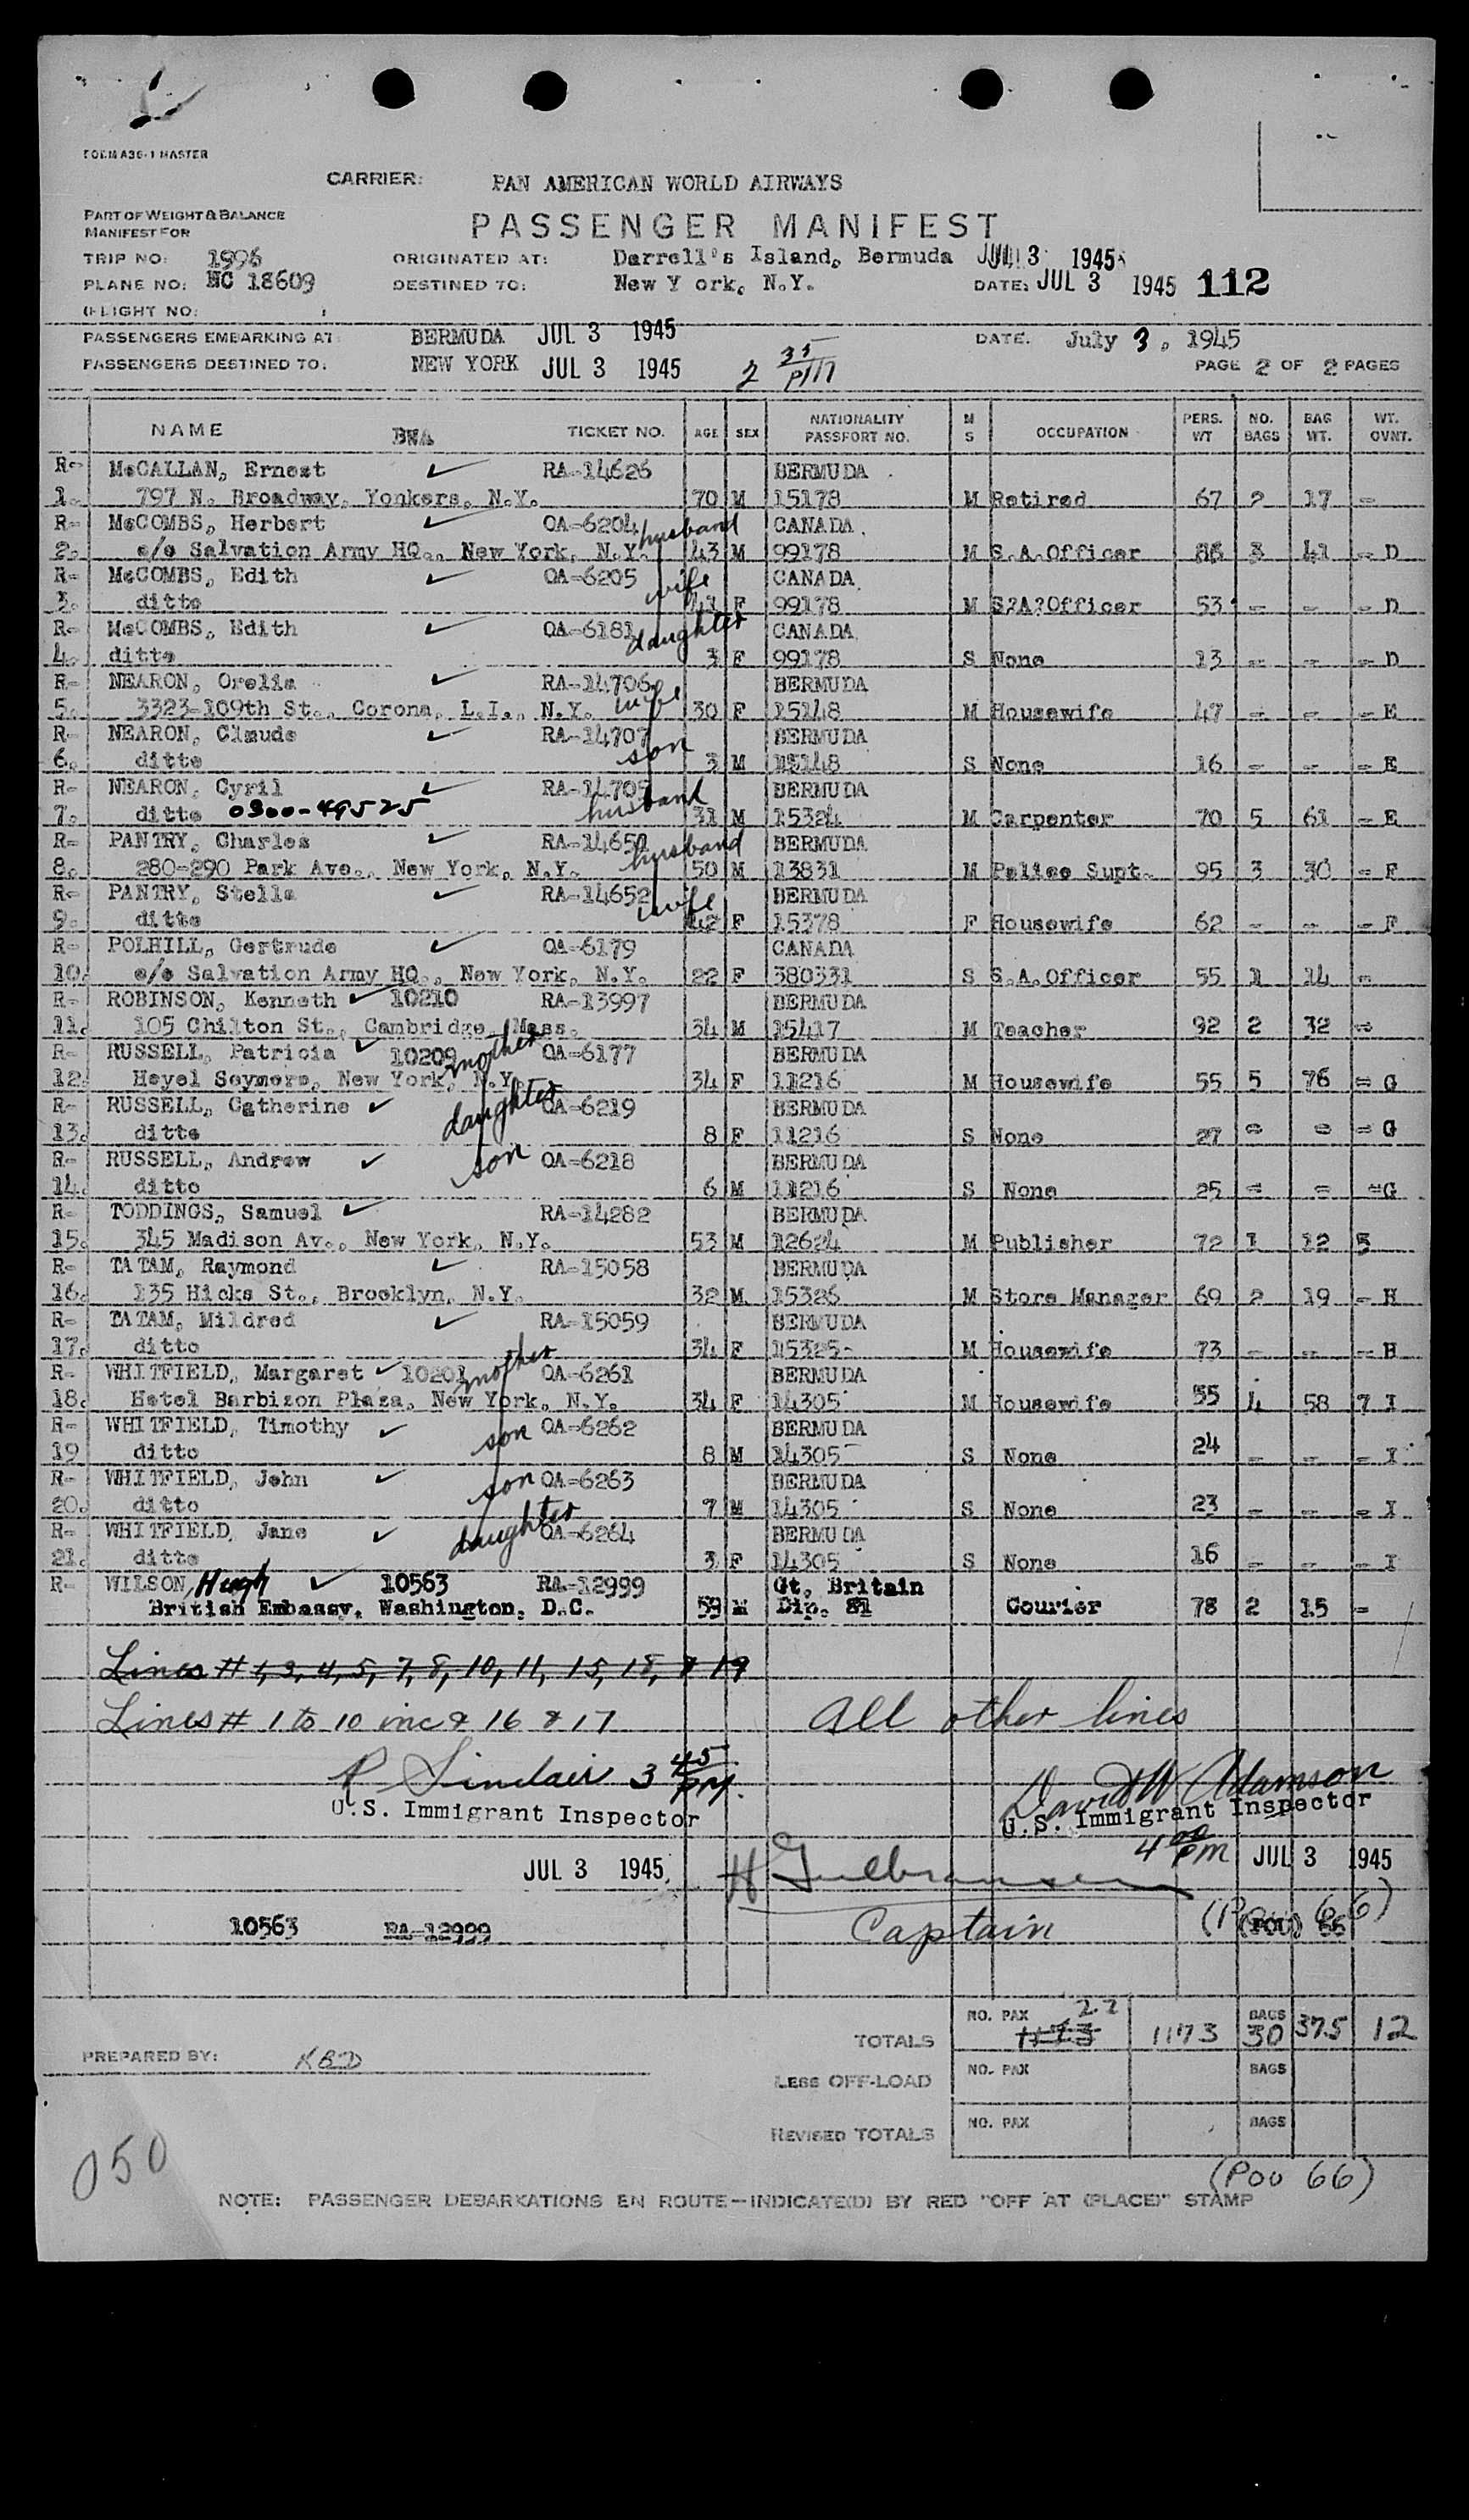 FORM A36-1 MASTER
CARRIER: PAN AMERICAN WORLD AIRWAYS
PART OF WEIGHT & BALANCE
MANIFEST FOR
PASSENGER MANIFEST
TRIP NO: 1996 ORIGINATED AT: Darrell's Island, Bermuda JUL 3 1945
PLANE NO: NC 18609 DESTINED TO: New Y ork, N.Y. DATE: JUL 3 1945 112
FLIGHT NO:
PASSENGERS EMBARKING AT BERMUDA JUL 3 1945 DATE. July 3, 1945
PASSENGERS DESTINED TO: NEW YORK JUL 3 1945 2 35 PM PAGE 2 OF 2 PAGES
NAME BWA TICKET NO. AGE SEX NATIONALITY PASSPORT NO. M S OCCUPATION PERS. WT NO. BAGS BAG WT. WT. OVNT.
R- McCALLAN, Ernest ✓ RA-14626 BERMUDA
1. 797 N. Broadway, Yonkers, N.Y. 70 M 15178 M Retired 67 2 17 -
R- McCOMBS, Herbert ✓ OA-6204 husband CANADA
2. c/o Salvation Army HQ., New York, N.Y. 43 M 99178 M S.A.Officer 86 3 41 - D
R- McCOMBS, Edith ✓ OA-6205 wife CANADA
3. ditto 41 F 99178 M S?A?Officer 53 - - - D
R- McCOMBS, Edith ✓ OA-6181 daughter CANADA
4. ditto 3 F 99178 S None 13 - - - D
R- NEARON, Orelia ✓ RA-14706 wife BERMUDA
5. 3323-109th St., Corona, L.I., N.Y. 30 F 15148 M Housewife 47 - - - E
R- NEARON, Claude ✓ RA-14707 son BERMUDA
6. ditto 3 M 15148 S None 16 - - - E
R- NEARON, Cyril ✓ RA-14705 husband BERMUDA
7. ditto 0300-49525 31 M 15324 M Carpenter 70 5 61 - E
R- PANTRY, Charles ✓ RA-14650 husband BERMUDA
8. 280-290 Park Ave., New York, N.Y. 50 M 13831 M Police Supt. 95 3 30 - F
R- PANTRY, Stella ✓ RA-14652 wife BERMUDA
9. ditto 42 F 15378 F Housewife 62 - - - F
R- POLHILL, Gertrude ✓ OA-6179 CANADA
10. c/o Salvation Army HQ., New York, N.Y. 22 F 380331 S S.A.Officer 55 1 14 -
R- ROBINSON, Kenneth ✓ 10210 RA-13997 BERMUDA
11. 105 Chilton St., Cambridge, Mass. 34 M 15417 M Teacher 92 2 32 -
R- RUSSELL, Patricia ✓ 10209 mother OA-6177 BERMUDA
12. Hoyel Seymore, New York, N.Y. 34 F 11216 M Housewife 55 5 76 - G
R- RUSSELL, Catherine ✓ daughter OA-6219 BERMUDA
13. ditto 8 F 11216 S None 27 - - - G
R- RUSSELL, Andrew ✓ son OA-6218 BERMUDA
14. ditto 6 M 11216 S None 25 - - -G
R- TODDINGS, Samuel ✓ RA-14282 BERMUDA
15. 345 Madison Av., New York, N.Y. 53 M 12624 M Publisher 72 1 12 5
R- TATAM, Raymond ✓ RA-15058 BERMUDA
16. 135 Hicks St., Brooklyn, N.Y. 32 M 15326 M Store Manager 69 2 19 - H
R- TATAM, Mildred ✓ RA-15059 BERMUDA
17. ditto 34 F 15325- M Housewife 73 - - - H
R- WHITFIELD, Margaret ✓ 10201 mother OA-6261 BERMUDA
18. Hotel Barbizon Plaza, New York, N.Y. 34 F 14305 M Housewife 55 4 58 7 I
R- WHITFIELD, Timothy ✓ son OA-6262 BERMUDA
19 ditto 8 M 14305 S None 24 - - - I
R- WHITFIELD, John ✓ son OA-6263 BERMUDA
20. ditto 7 M 14305 S None 23 - - - I
R- WHITFIELD, Jane ✓ daughter OA-6264 BERMUDA
21. ditto 3 F 14305 S None 16 - - - I
R- WILSON, Hugh ✓ 10563 RA-12999 Gt. Britain
British Embassy, Washington, D.C. 59 M Dip. 81 Courier 78 2 15 -
Lines # 1, 3, 4, 5, 7, 8, 10, 11, 15, 18, & 19
Lines # 1 to 10 inc & 16 & 17 All other lines
R Sinclair 3 45 PM. David W Adamson
U.S. Immigrant Inspector U.S. Immigrant Inspector
4 00 PM JUL 3 1945
JUL 3 1945 H Gulbransen
10563 RA-12999 Captain (Pou 66) (POU) 66
TOTALS NO. PAX 22 1173 1173 BAGS 30 375 12
PREPARED BY: KBD
LESS OFF-LOAD NO. PAX BAGS
REVISED TOTALS NO. PAX BAGS
050 (POU 66)
NOTE: PASSENGER DEBARKATIONS EN ROUTE-INDICATE(D) BY RED "OFF AT (PLACE)" STAMP